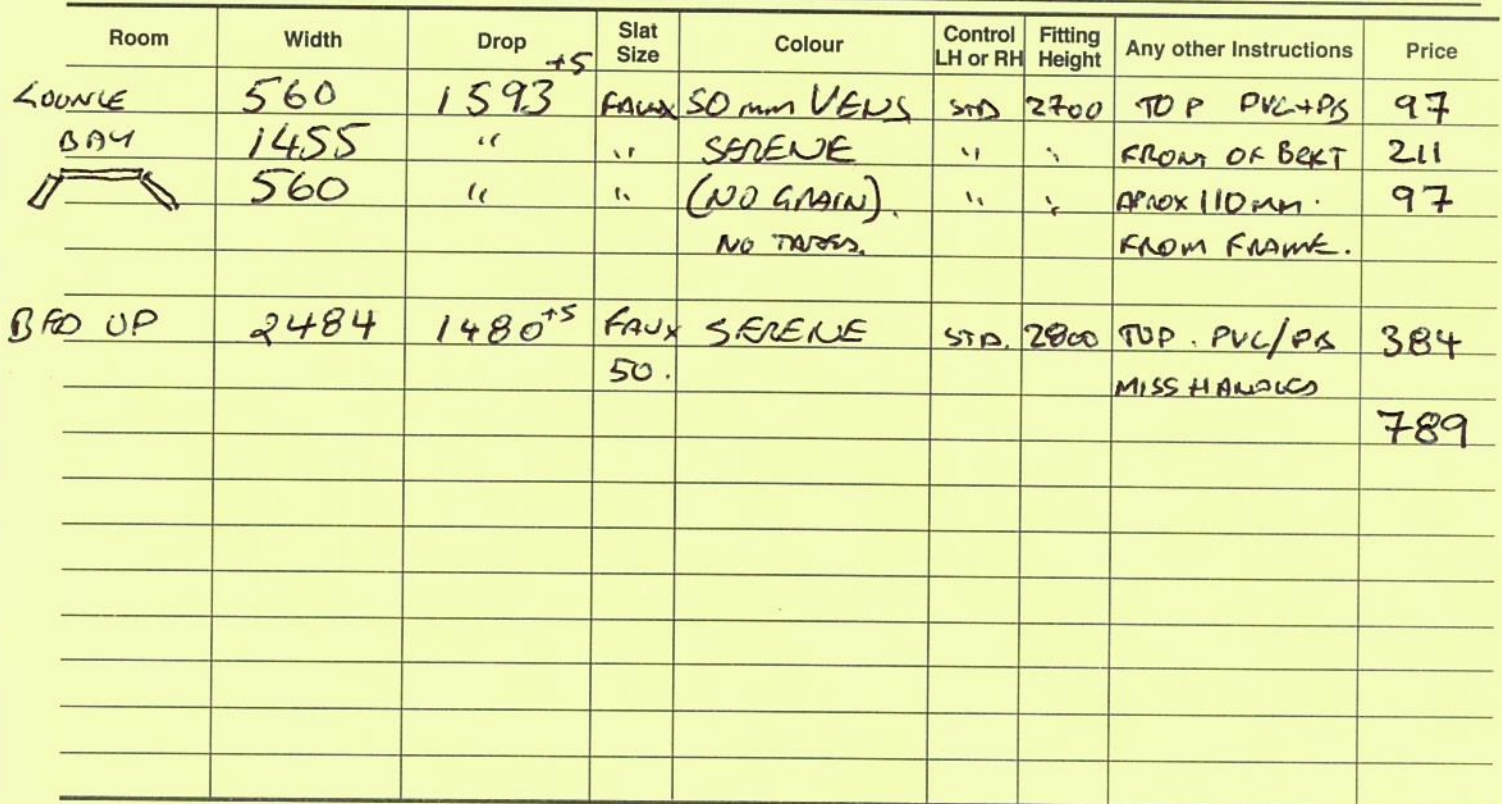 Room Width Drop Slat Size Colour Control LH or RH Fitting Height Any other Instructions Price
+5
LOUNGE 560 1593 FAUX 50 mm VENS STD 2700 TOP PVC+PB 97
BAY 1455 " " SERENE " " FRONT OF BRKT 211
560 " " (NO GRAIN). " " APROX 110 mm. 97
NO TAPES. FROM FRAME.
BED UP 2484 1480 +5 FAUX SERENE STD. 2800 TOP. PVC/PB 384
50. MISS HANDLES
789